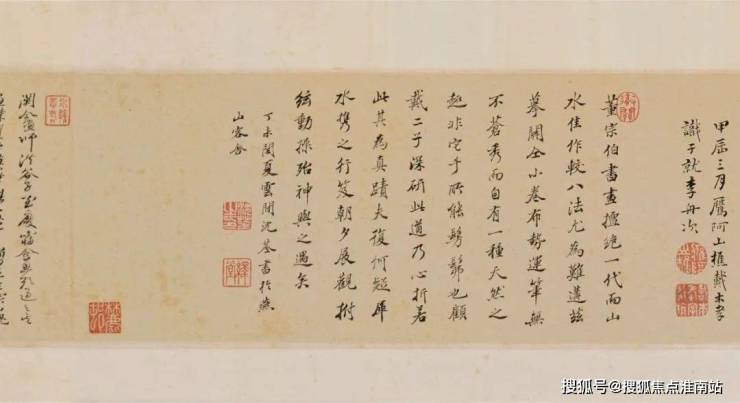 甲辰三月鷹阿山樵戴本孝
識于就李舟次
董宗伯書畫擅絕一代而山
水佳作較八法尤為難遘茲
摹關仝小卷布勢運筆無
不蒼秀而自有一種天然之
趣非它手所能髣髴也顧
戴二子深研此道乃心折若
此其為真蹟夫復何疑庠
水攜之行笈朝夕展觀拊
絃動操殆神與之遇矣
丁未閏夏雲間沈荃書於燕
山客舍
關仝師洪谷子
搜狐号@搜狐焦点淮南站